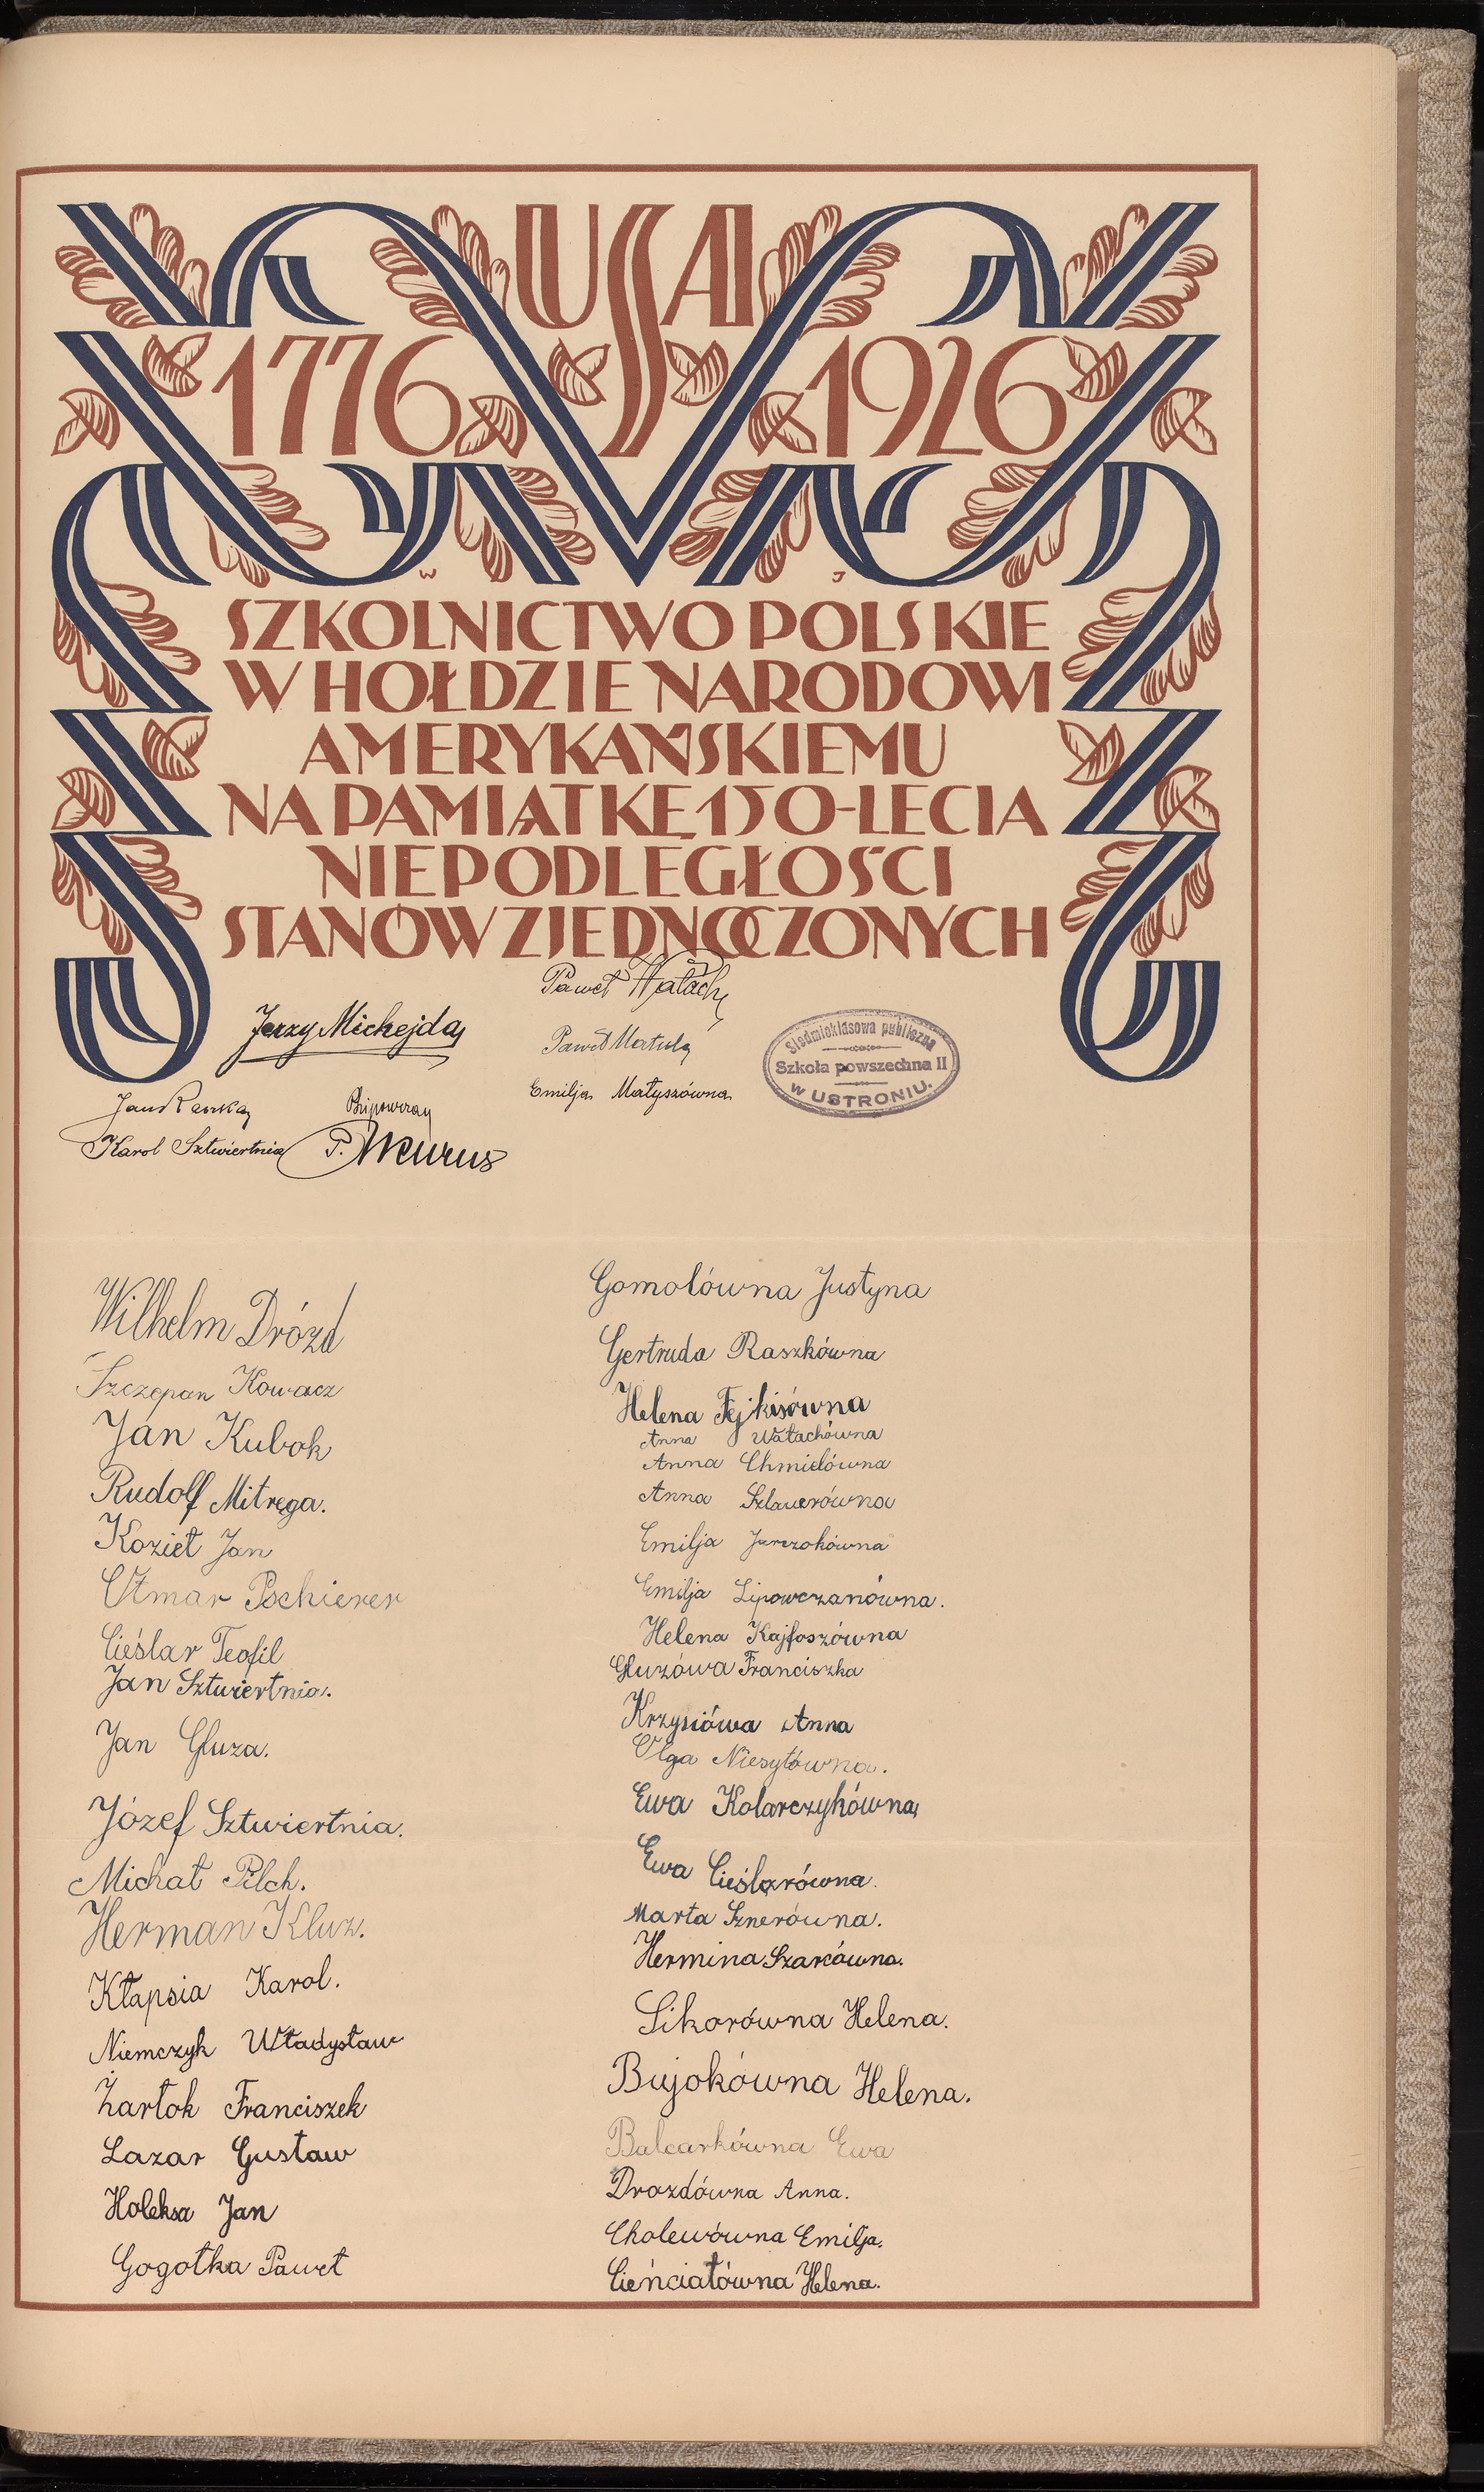 USA
1776 1926
W J
SZKOLNICTWO POLSKIE
W HOŁDZIE NARODOWI
AMERYKAŃSKIEMU
NA PAMIĄTKĘ 150-LECIA
NIEPODLEGŁOŚCI
STANÓW ZJEDNOCZONYCH
Jerzy Michejda
Jan Raszka
Karol Sztwiertnia
P.
Paweł Wałach
Paweł Matula
Emilja Matyszówna
Siedmioklasowa publiczna
Szkoła powszechna II
w USTRONIU.
Wilhelm Drózd
Szczepan Kowacz
Jan Kubok
Rudolf Mitręga.
Kozieł Jan
Otmar Pschierer
Cieślar Teofil
Jan Sztwiertnia.
Jan Gluza.
Józef Sztwiertnia.
Michał Pilch.
Herman Kluz.
Kłapsia Karol.
Niemczyk Władysław
Żarłok Franciszek
Lazar Gustaw
Holeksa Jan
Gogółka Paweł
Gomolówna Justyna
Gertruda Raszkówna
Helena Fejkisówna
Anna Wałachówna
Anna Chmielówna
Anna Szlauerówna
Emilja Jurczokówna
Emilja Lipowczanówna.
Helena Kajfoszówna
Gluzówa Franciszka
Krzysiówa Anna
Olga Niesyłówna.
Ewa Kolarczykówna
Ewa Cieślarówna.
Marta Sznerówna.
Hermina Szarcówna.
Sikorówna Helena.
Bujokówna Helena.
Balcarkówna Ewa
Drozdówna Anna.
Cholewówna Emilja.
Cieńciałówna Helena.